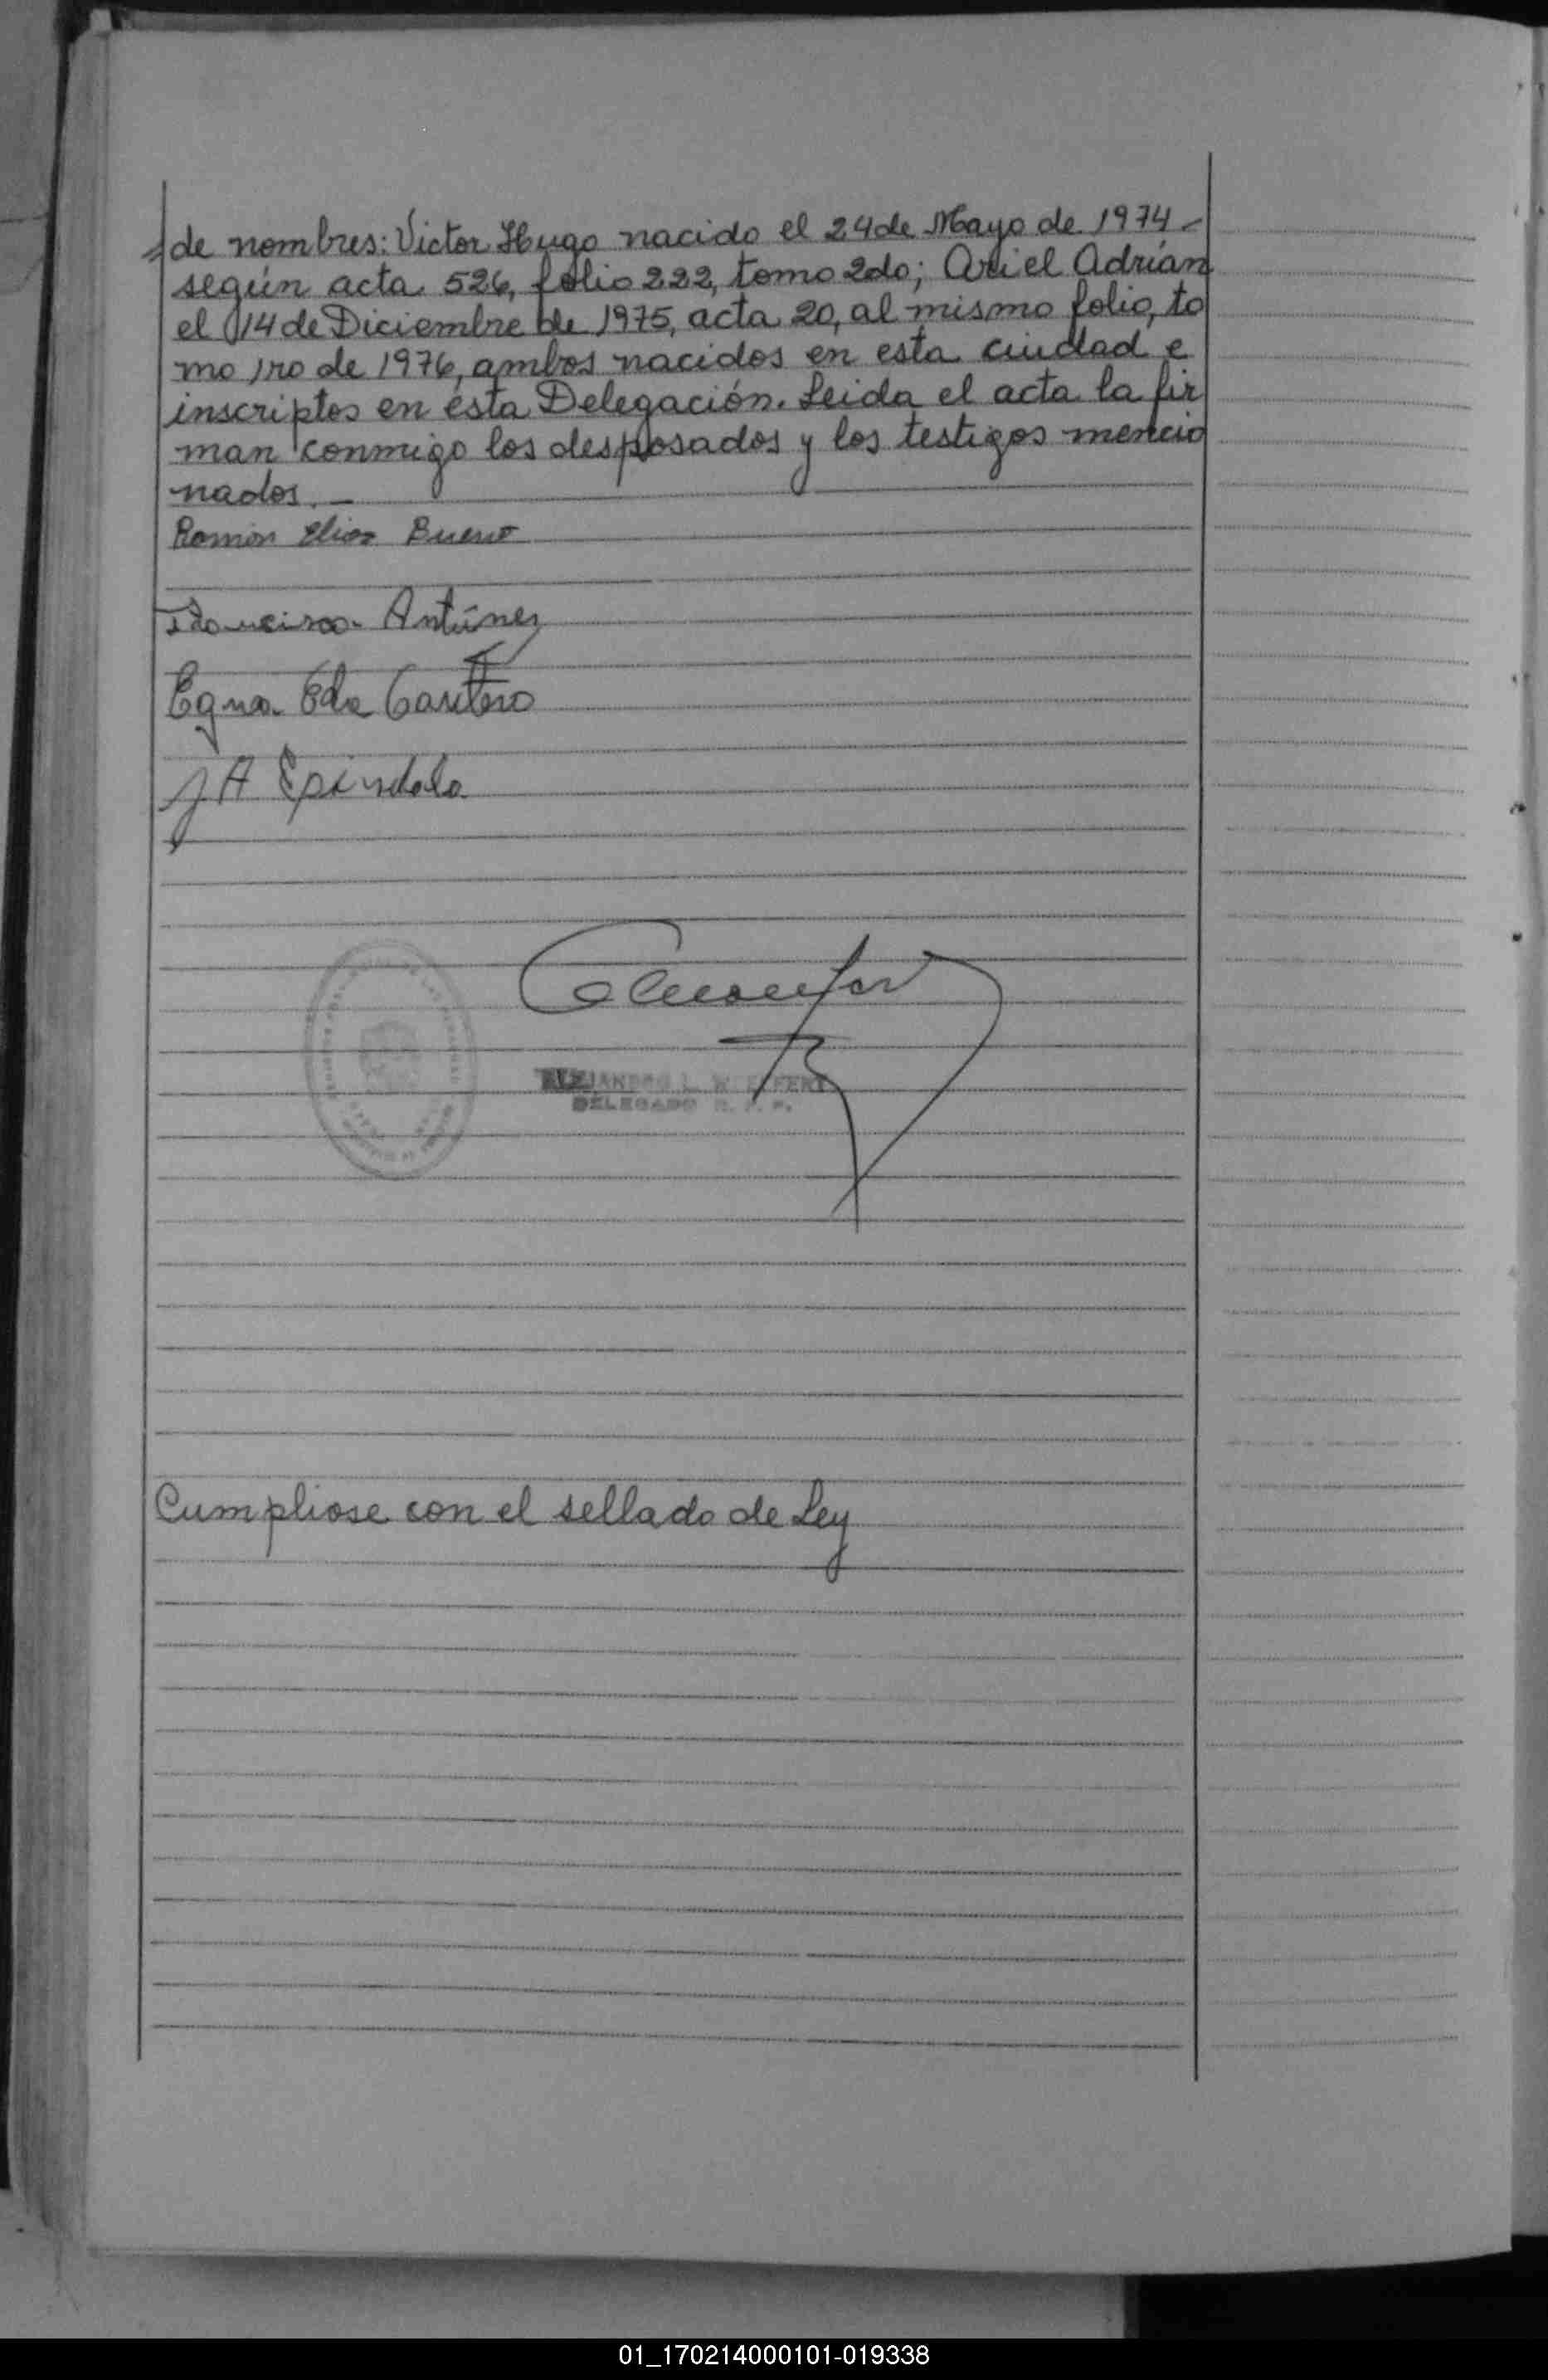 =de nombres: Victor Hugo nacido el 24 de Mayo de 1974 -
según acta 526, folio 222, tomo 2do; Ariel Adrián
el 14 de Diciembre de 1975, acta 20, al mismo folio, to
mo 1ro de 1976, ambos nacidos en esta ciudad e
inscriptos en ésta Delegación. Leida el acta la fir
man conmigo los desposados y los testigos mencio
nados. -
Ramón Elias Bueno
Francisca Antúnez
Egna Eda
J A Espindola
ALEJANDRO L.
DELEGADO R. P. P.
Cumpliose con el sellado de Ley
01_170214000101-019338